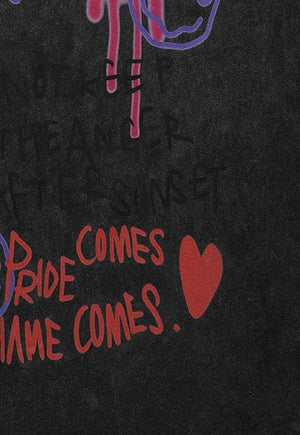 KEEP
THE ANGER
AFTER SUNSET.
PRIDE COMES
HAME COMES.